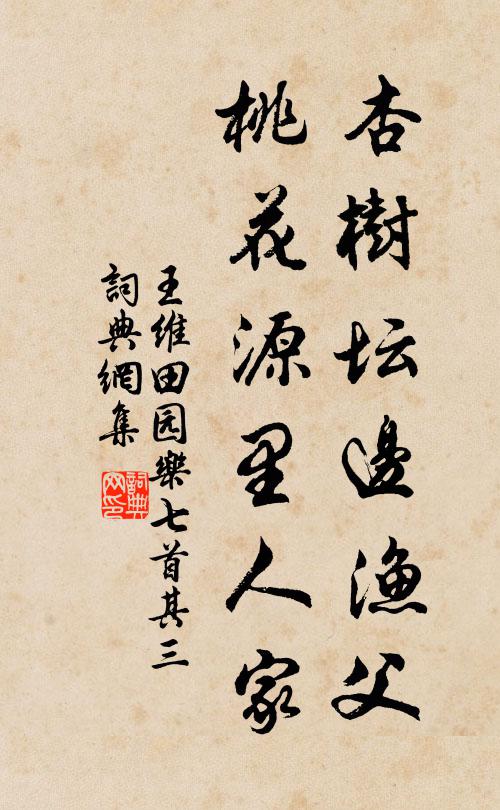 杏樹坛邊漁父
桃花源里人家
王維田园樂七首其三
詞典網集
詞典网印